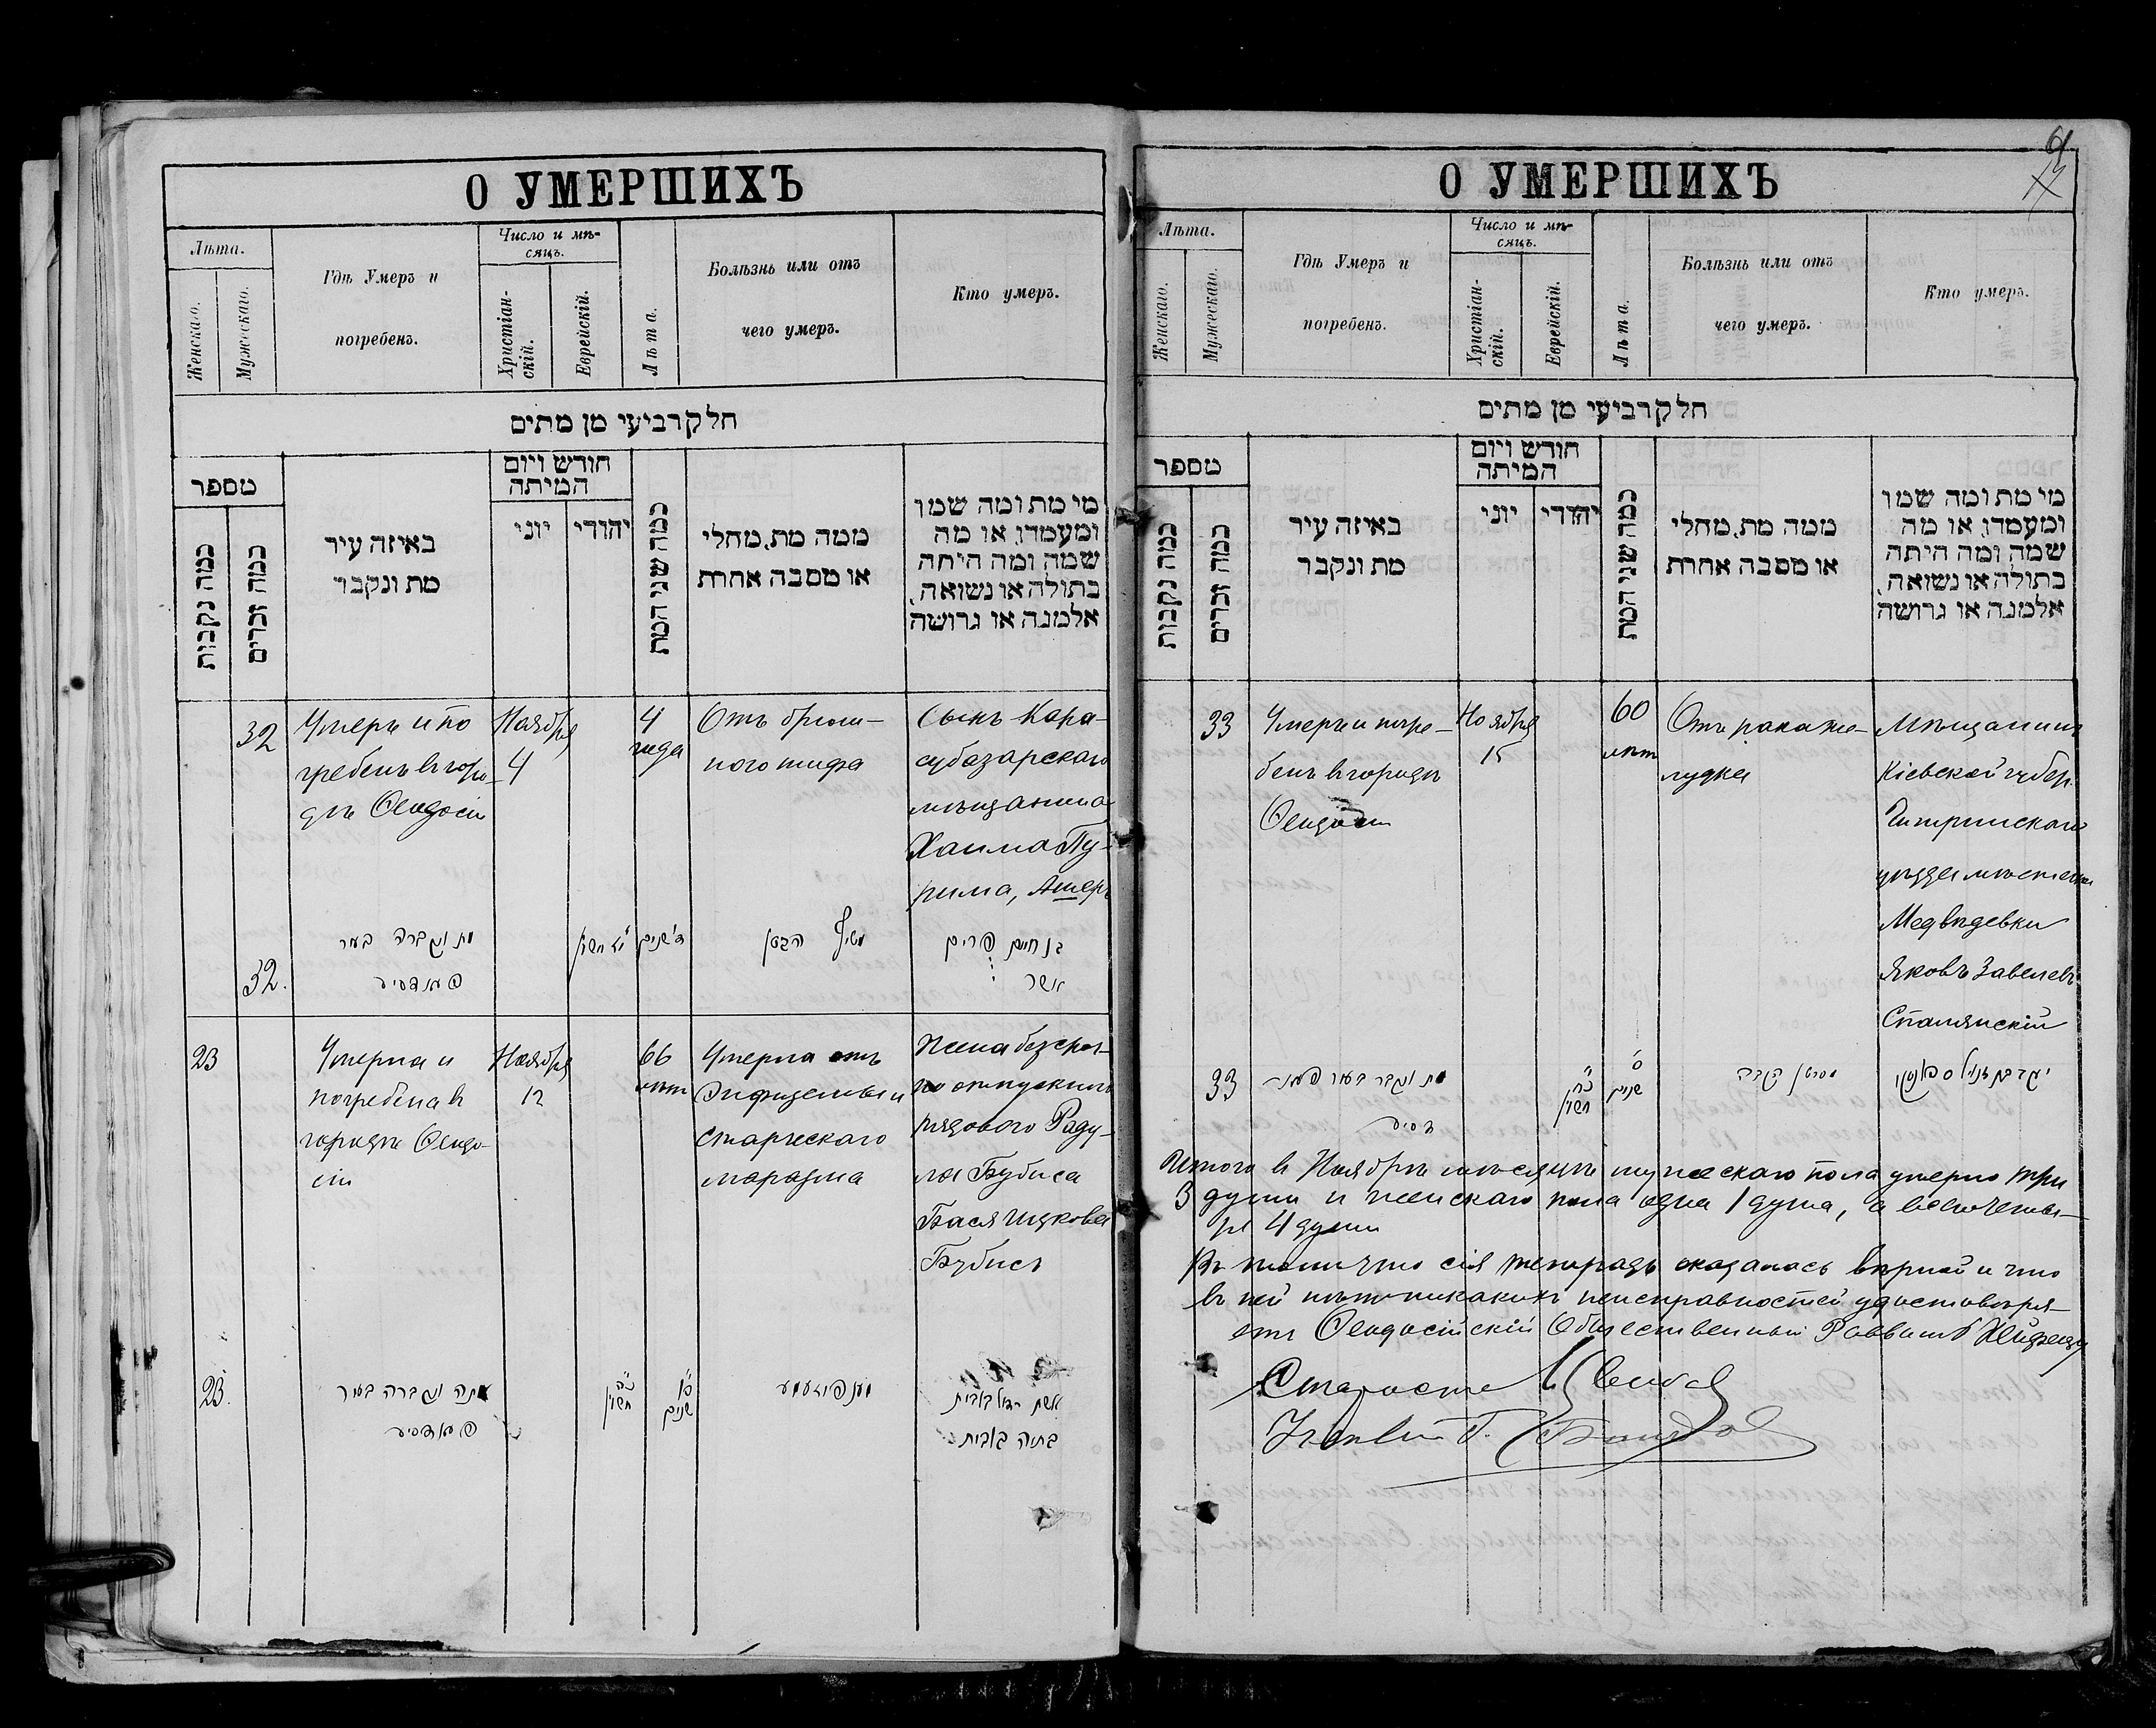 О УМЕРШИХЪ
Лѣта.
Женскаго.
Мужескаго.
Гдѣ Умеръ и
погребенъ.
Число и мѣ-
сяцъ.
Христіан-
скій.
Еврейскій.
Лѣта.
Болѣзнь или отъ
чего умеръ.
Кто умеръ.
חלק רביעי מן מתים
מספר
כמה נקבות
כמה זכרים
באיזה עיר
מת ונקבר
חודש ויום
המיתה
יוני
יהודי
כמה שני המת
ממה מת, מחלי
או מסבה אחרת
מי מת ומה שמו
ומעמדו, או מה
שמה ומה היתה
בתולה או נשואה,
אלמנה או גרושה
32
Умеръ и по
гребенъ въ горо-
дѣ Ѳеодосіи
Ноября
4
4
года
Отъ брюш-
ного тифа
Сынъ Кара-
субазарскаго
мѣщанина
Хаима Пу-
рима, Ашеръ
32.
מת ונקברה בעיר
פעאדאסיע
ד' שנים
הבטן
בן חיים פורים
אשר
23
Умерла и
погребена въ
городѣ Ѳеодо-
сіи
Ноября
12
66
лѣтъ
Умерла отъ
Эмфиземы и
старческаго
маразма
Жена безсроч-
но отпускнаго
рядового Раду-
ла Бубиса
Бася Ицкова
Бубисъ
23.
מתה ונקברה בעיר
פעאדאסיע
כ"ה
חשון
ס"ו
שנים
אשת
О УМЕРШИХЪ
Лѣта.
Женскаго.
Мужескаго.
Гдѣ Умеръ и
погребенъ.
Число и мѣ-
сяцъ.
Христіан-
скій.
Еврейскій.
Лѣта.
Болѣзнь или отъ
чего умеръ.
Кто умеръ.
חלק רביעי מן מתים
מספר
כמה נקבות
כמה זכרים
באיזה עיר
מת ונקבר
חודש ויום
המיתה
יוני
יהודי
כמה שני המת
ממה מת, מחלי
או מסבה אחרת
מי מת ומה שמו
ומעמדו, או מה
שמה ומה היתה
בתולה או נשואה,
אלמנה או גרושה
33
Умеръ и погре-
бенъ въ городѣ
Ѳеодосіи
Ноября
15
60
лѣтъ
Отъ рака же-
лудка
Мѣщанинъ
Кіевской губер.
Чигринскаго
уѣзда мѣстечка
Медвѣдевки
Яковъ Завелевъ
Сталянскій
33
מת ונקבר בעיר פעאָ-
דאסיע
כ"ח
חשון
ס'
שנים
סרטן הקבה
Итого въ Ноябрѣ мѣсяцѣ мужескаго пола умерло три
3 души и женскаго пола одна 1 душа, а всего четы-
ре 4 души
Въ томъ что сія тетрадь оказалась вѣрной и что
въ ней нѣтъ никакихъ неисправностей удостовѣря-
етъ Ѳеодосійскій Общественный Раввинъ
Староста